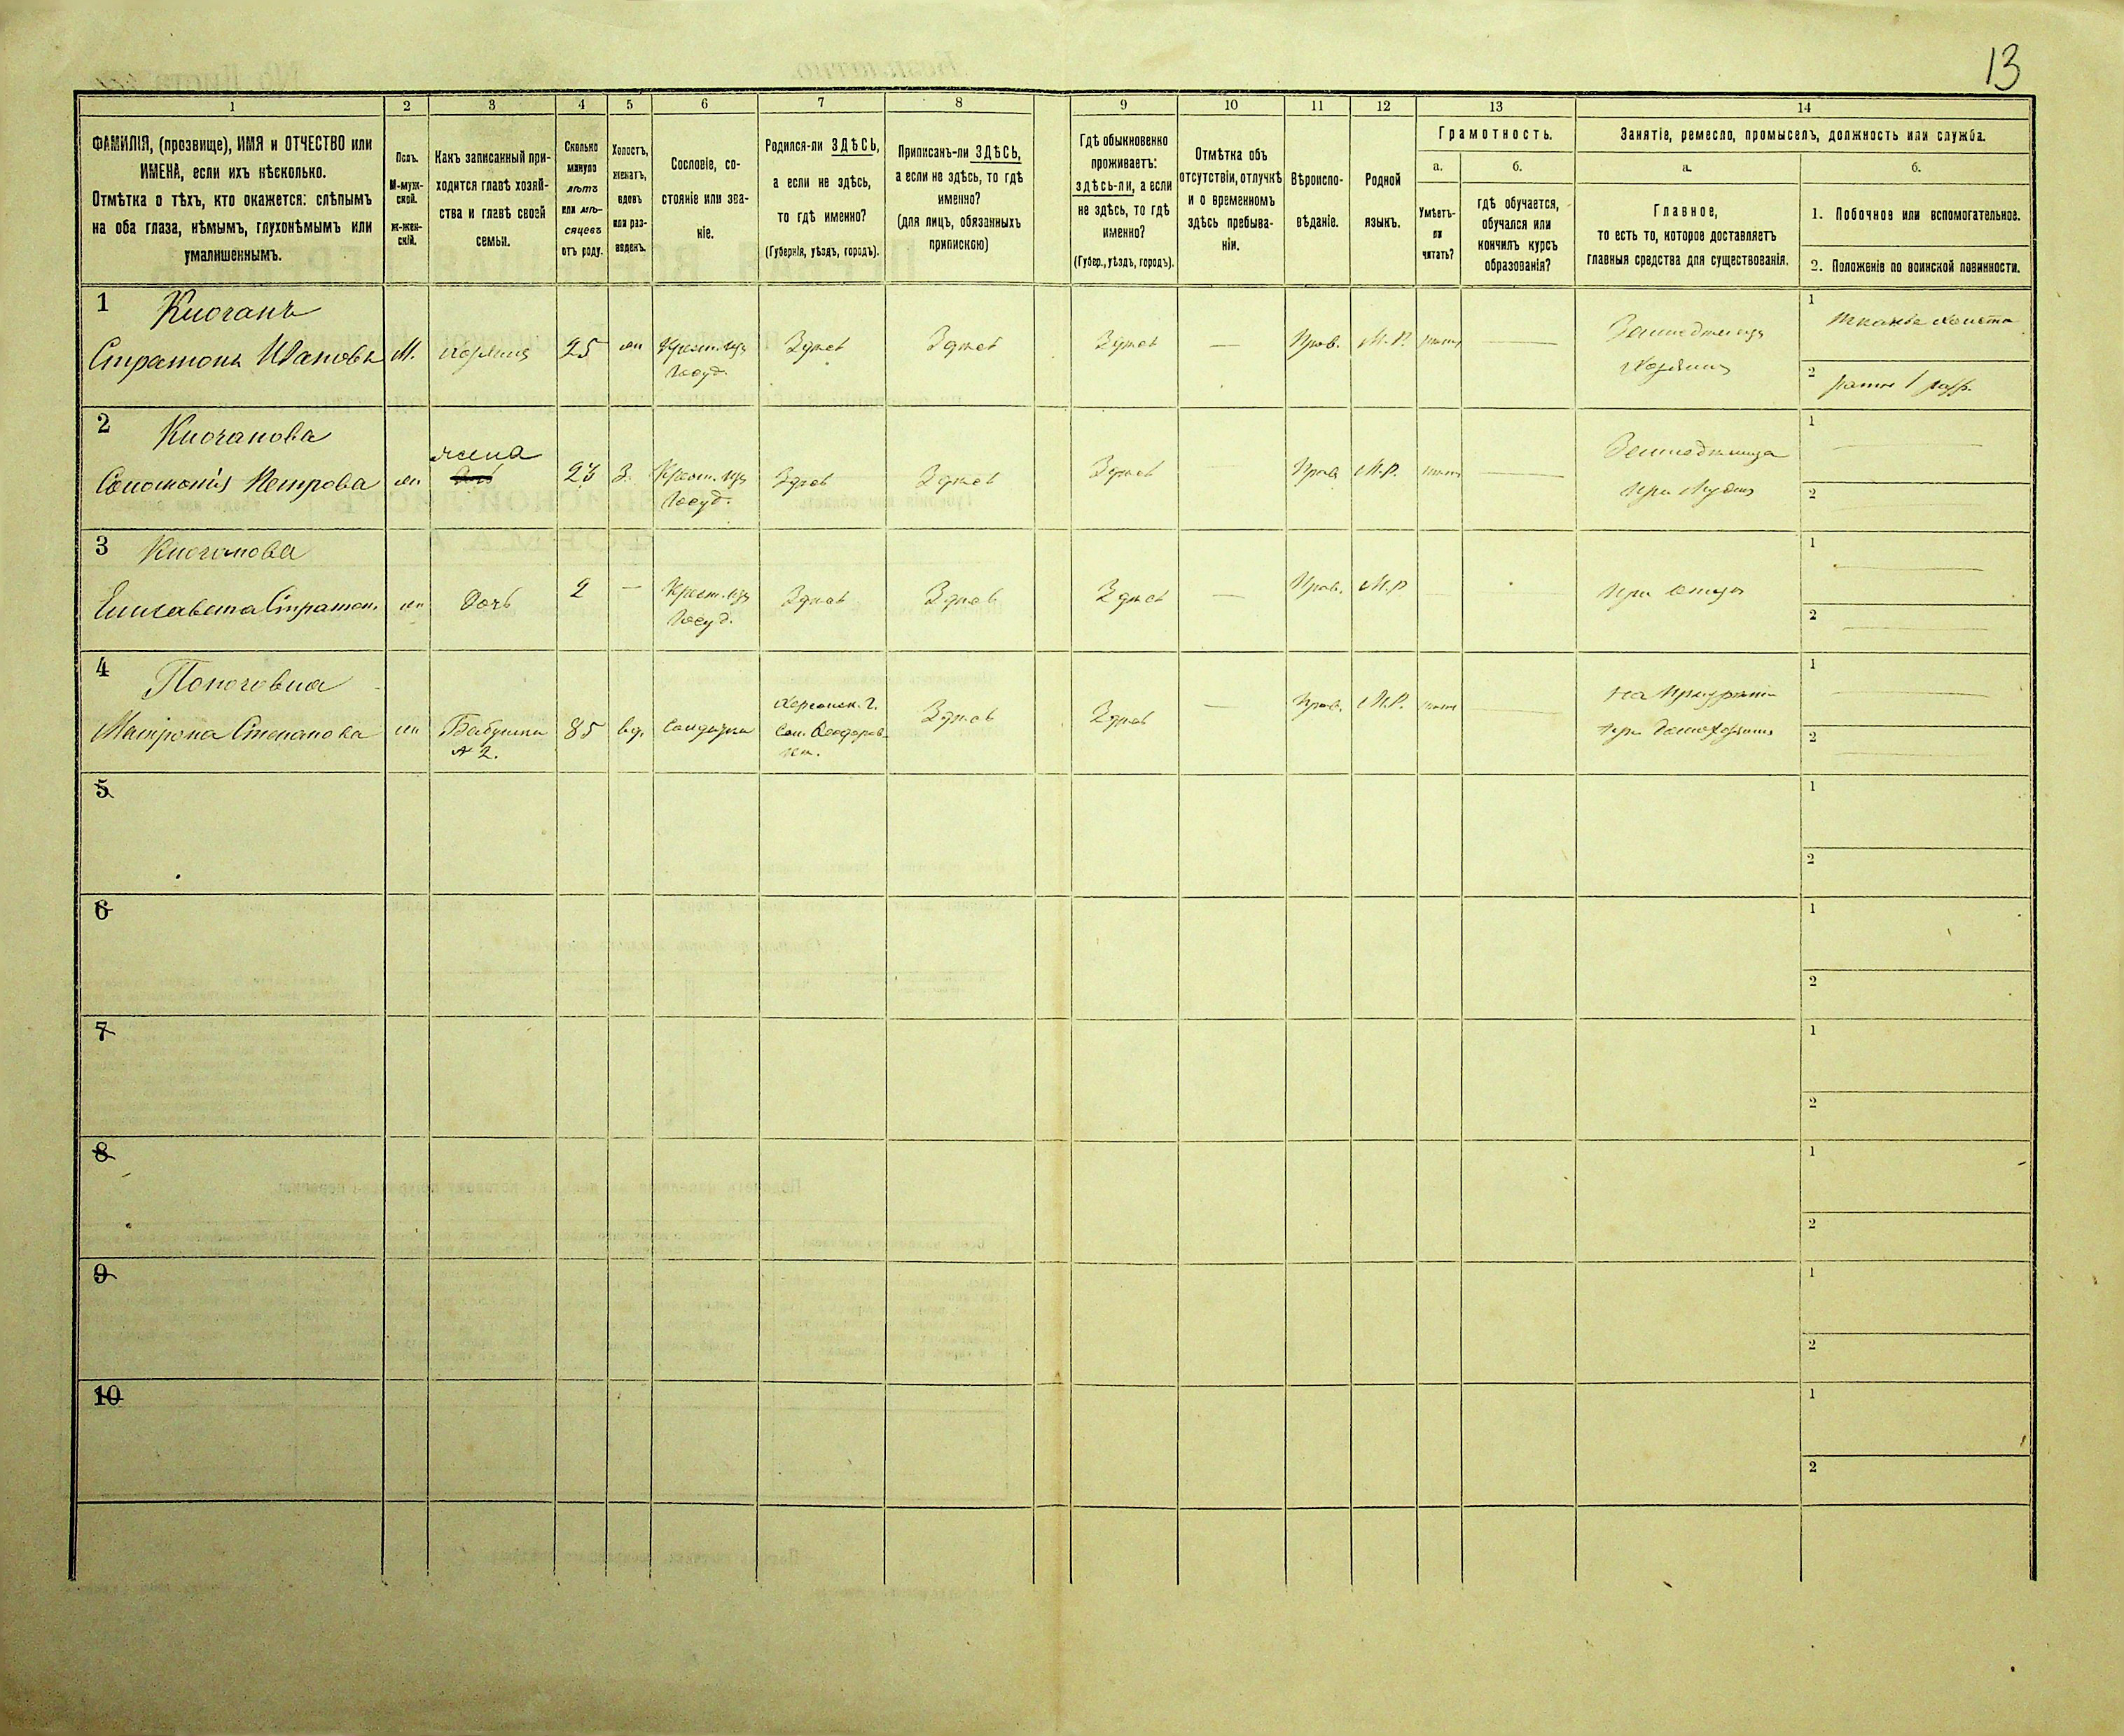 13
1
2
3
4
5
6
7
8
9
10
11
12
13
14
ФАМИЛІЯ, (прозвище), ИМЯ и ОТЧЕСТВО или
ИМЕНА, если ихъ нѣсколько.
Отмѣтка о тѣхъ, кто окажется: слѣпымъ
на оба глаза, нѣмымъ, глухонѣмымъ или
умалишеннымъ.
Полъ.
М-муж-
ской.
ж-жен-
скій.
Какъ записанный при-
ходится главѣ хозяй-
ства и главѣ своей
семьи.
Сколько
минуло
лѣтъ
или мѣ-
сяцевъ
отъ роду.
Холостъ,
женатъ,
вдовъ
или раз-
веденъ.
Сословіе, со-
стояніе или зва-
ніе.
Родился-ли ЗДѢСЬ,
а если не здѣсь,
то гдѣ именно?
(Губернія, уѣздъ, городъ).
Приписанъ-ли ЗДѢСЬ,
а если не здѣсь, то гдѣ
именно?
(для лицъ, обязанныхъ
припискою)
Гдѣ обыкновенно
проживаетъ:
здѣсь-ли, а если
не здѣсь, то гдѣ
именно?
(Губер., уѣздъ, городъ).
Отмѣтка объ
отсутствіи, отлучкѣ
и о временномъ
здѣсь пребыва-
ніи.
Вѣроиспо-
вѣданіе.
Родной
языкъ.
Грамотность.
а.
Умѣетъ-
ли
читать?
б.
гдѣ обучается,
обучался или
кончилъ курсъ
образованія?
Занятіе, ремесло, промыселъ, должность или служба.
а.
Главное,
то есть то, которое доставляетъ
главныя средства для существованія.
б.
1. Побочное или вспомогательное.
2. Положеніе по воинской повинности.
1
Стратонъ Ивановъ
М.
хозяинъ
25
Крест. изъ
Госуд.
Здѣсь
Здѣсь
Здѣсь
—
Прав.
М.Р.
—
Земледѣлецъ
Хозяинъ
1
тканье холста
2
ратн. 1 разр.
2
Соломонія Петрова
жена
23
З.
Крест. изъ
Госуд.
Здѣсь
Здѣсь
Здѣсь
—
Прав
М.Р.
—
1
—
2
3
Елисавета Стратон.
дочь
2
—
Крест. изъ
Госуд.
Здѣсь
Здѣсь
Здѣсь
—
Прав.
М.Р
—
при отцѣ
1
—
2
—
4
Матрона Степанова
Бабушка
№ 2.
85
вд.
Солдатка
Херсонск. г.
Здѣсь
Здѣсь
—
Прав.
М.Р.
—
1
—
2
—
5
1
2
6
1
2
7
1
2
8
1
2
9
1
2
10
1
2